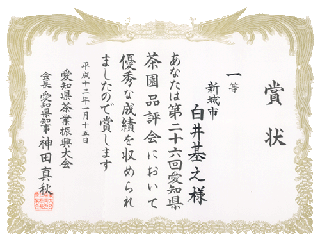 賞状
一等
新城市
白井基之様
あなたは第二十六回愛知県
茶園品評会において
優秀な成績を収められ
ましたので賞します
平成十二年一月十五日
愛知県茶業振興大会
会長愛知県知事神田真秋